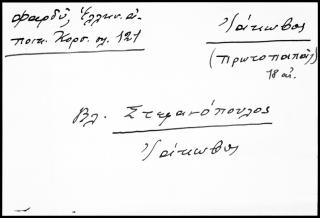 Φαρδύ, Ἑλλην. ἀ-
ποικ. Κορσ. σ. 121
Ἰάκωβος
(Πρωτοπαπᾶς)
18 αἰ.
Βλ. Στεφανόπουλος
Ἰάκωβος